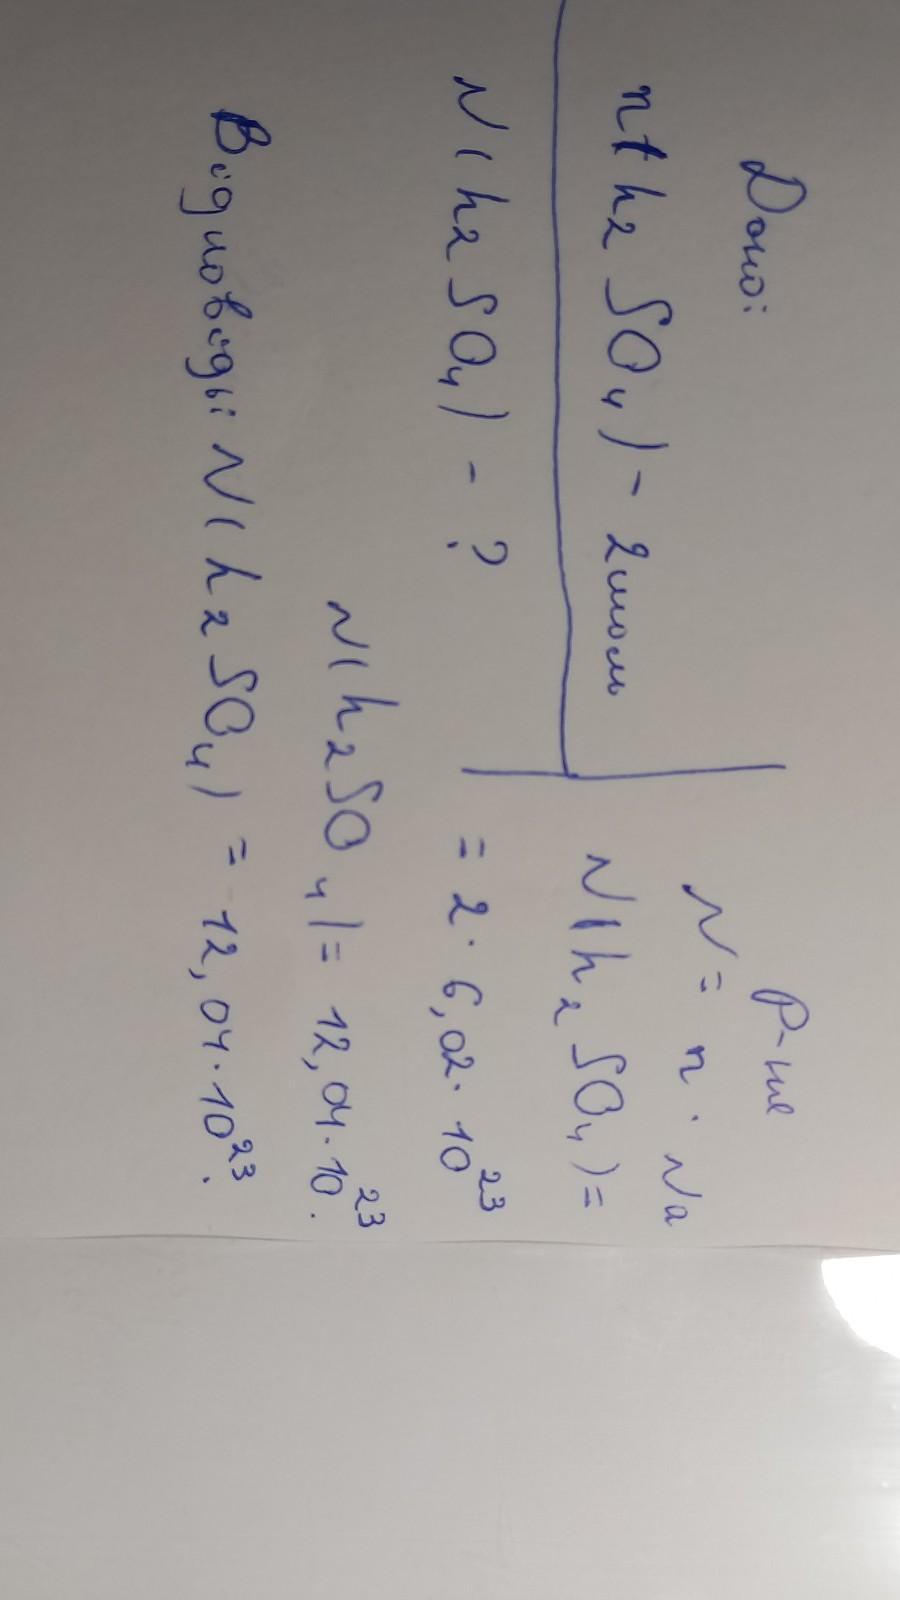 Дано:
n(h₂SO₄) - 2моль
N(h₂SO₄) - ?
Р-ня
N = n · Na
N(h₂SO₄) =
= 2 · 6,02 · 10²³
N(h₂SO₄) = 12,04 · 10²³.
Відповідь: N(h₂SO₄) = 12,04 · 10²³.